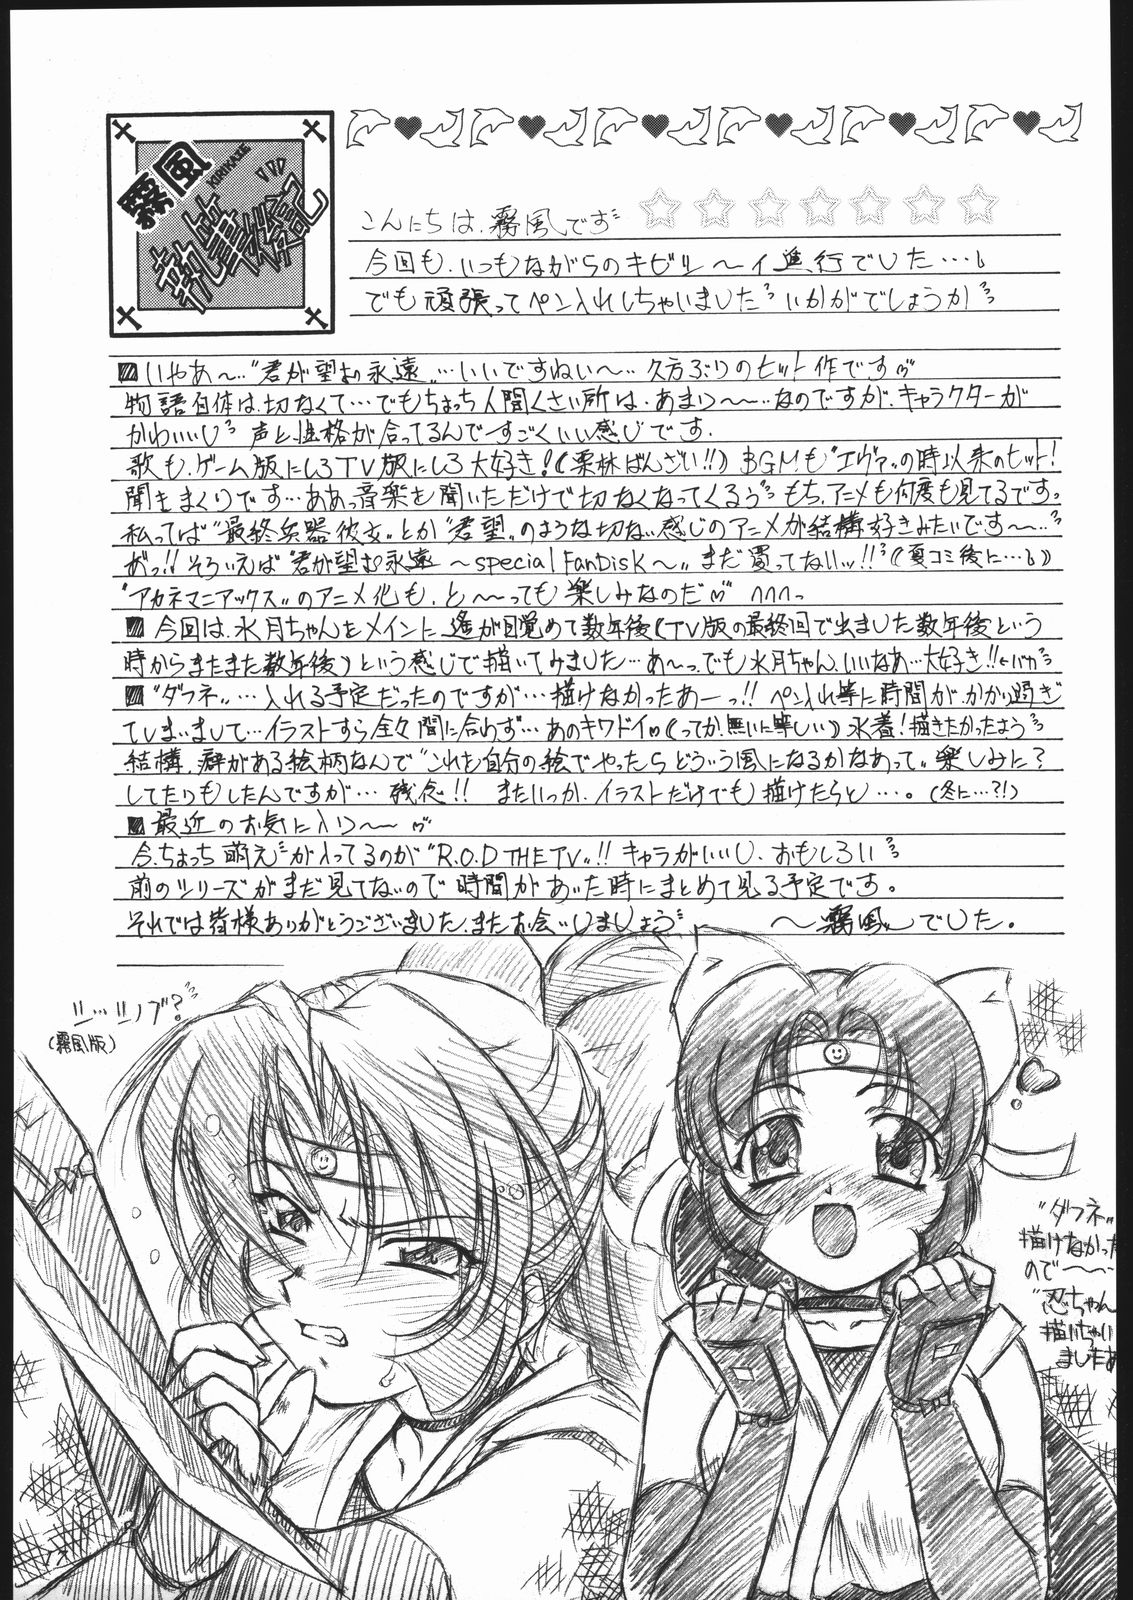 霧風
KIRIKAZE
執筆後記
こんにちは、霧風です
今回も、いつもながらのキビシ〜イ進行でした…
でも頑張ってペン入れしちゃいました いかがでしょうか
■いやあ〜…"君が望む永遠"…いいですねい〜…久方ぶりのヒット作です
物語自体は、切なくて…でもちょっち人間くさい所は、あまり〜…なのですが、キャラクターが
かわいいし 声と、性格が合ってるんですごくいい感じです。
歌も、ゲーム版にしろTV版にしろ大好き!(栗林ばんざい!!) BGMも"エヴァ"の時以来のヒット!
聞きまくりです…ああっ音楽を聞いただけで切なくなってくるぅ もち、アニメも何度も見てるです。
私ってば"最終兵器彼女"とか"君望"のような切ない感じのアニメが結構好きみたいです〜…
あっ!! そういえば"君が望む永遠 〜special FanDisk〜"まだ買ってないッ!!(夏コミ後に…)
"アカネマニアックス"のアニメ化も、と〜〜っても楽しみなのだ
■今回は、水月ちゃんをメインに遙が目覚めて数年後(TV版の最終回で出ました数年後という
時からまたまた数年後)という感じで描いてみました…あ〜っ、でも水月ちゃん、いいなあ…大好き!!←バカ
■"ダフネ"…入れる予定だったのですが…描けなかったあーっ!! ペン入れ等に時間が、かかり過ぎ
てしまいまして…イラストすら全々間に合わず…あのキワドイ(ってか、無いに等しい)水着!描きたかったよう
結構、癖がある絵柄なんで"これを自分の絵でやったらどういう風になるかなあって"楽しみに?
してたりもしたんですが… 残念!! またいつか、イラストだけでも描けたらと…。(冬に…?!)
■最近のお気に入り〜〜
今、ちょっち萌えが入ってるのが"R.O.D THE TV"!! キャラがいいし、おもしろい
前のシリーズがまだ見てないので時間があいた時にまとめて見る予定です。
それでは皆様ありがとうございました、またお会いしましょう 〜霧風でした。
シ…シノブ?
(霧風版)
"ダフネ"
描けなかった
ので〜〜…
"忍ちゃん
描いちゃい
ましたあ